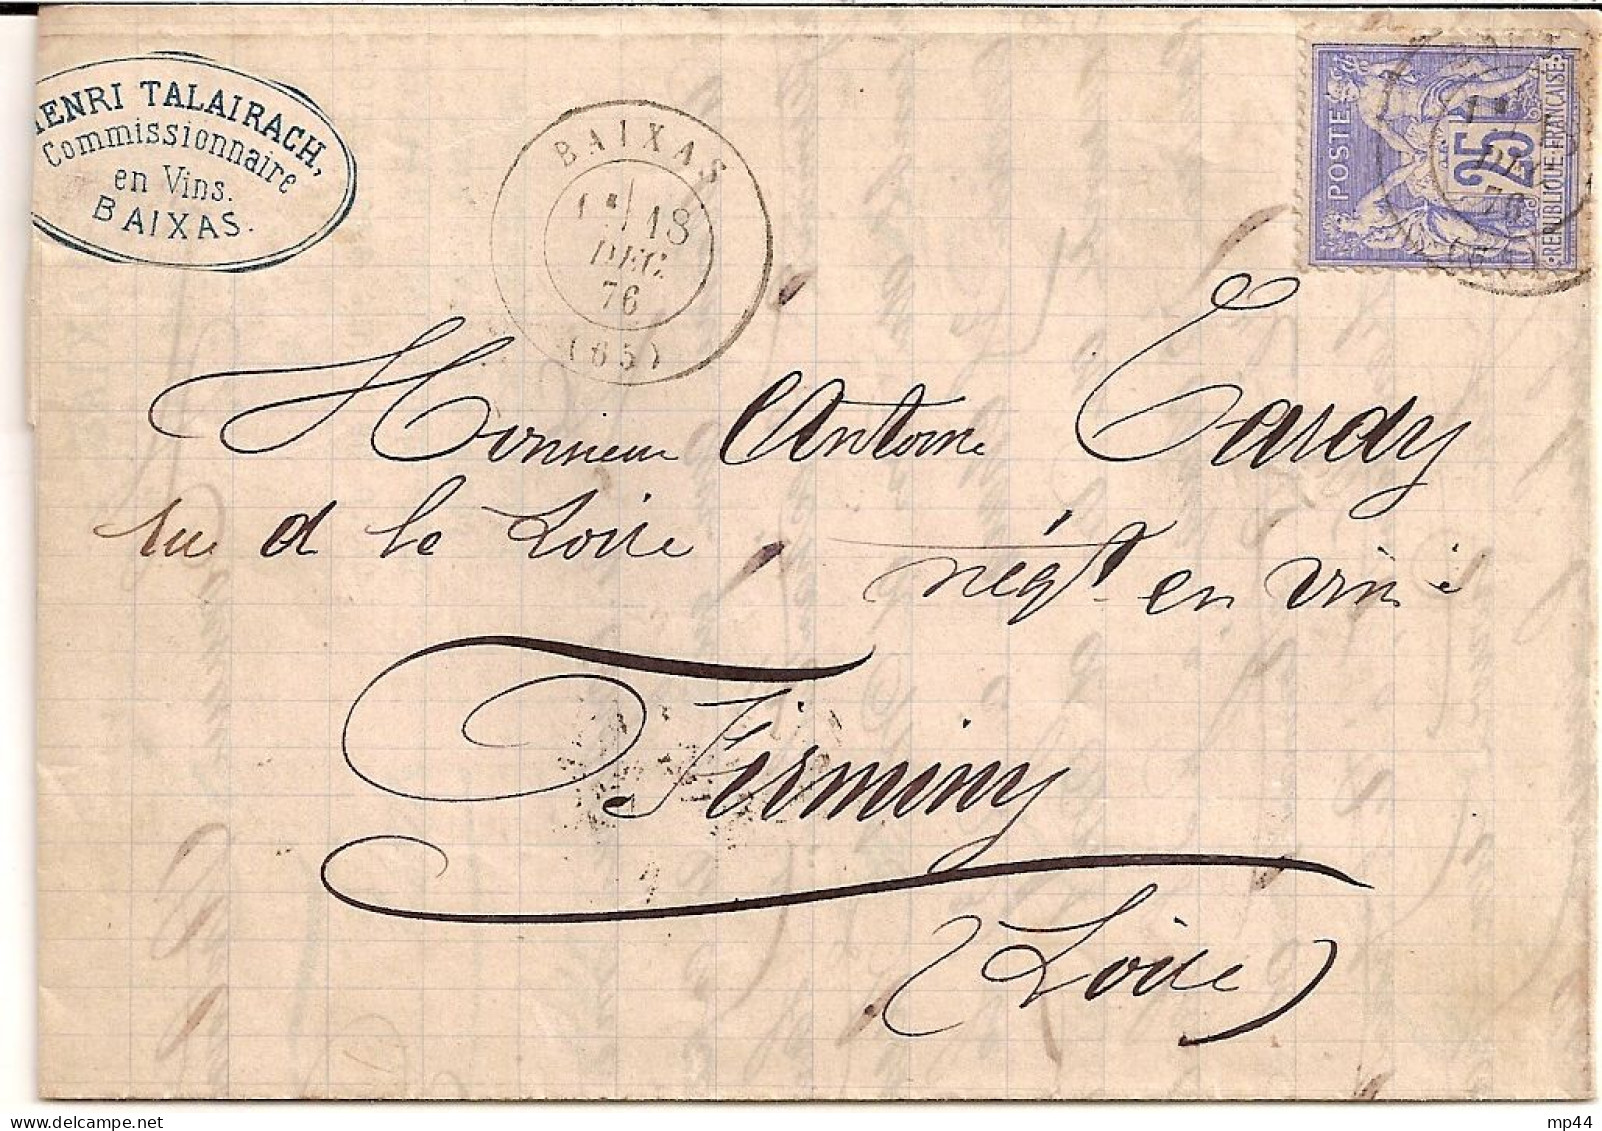 HENRI TALAIRACH,
Commissionnaire
en Vins.
BAIXAS.
BAIXAS
1E/ 18
DEC
76
(65)
POSTE
25
REPUBLIQUE FRANCAISE
76
Monsieur Antoine Tardy
rue de la Loire
négt en vins
Firminy
(Loire)
mp44